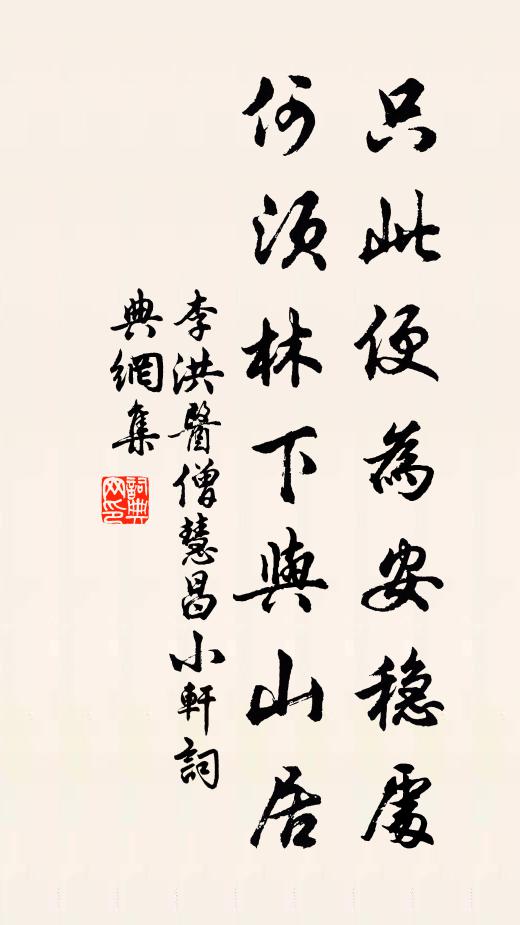 只此便為安穩處
何須林下與山居
李洪醫僧慧昌小軒詞
典網集
詞典網印